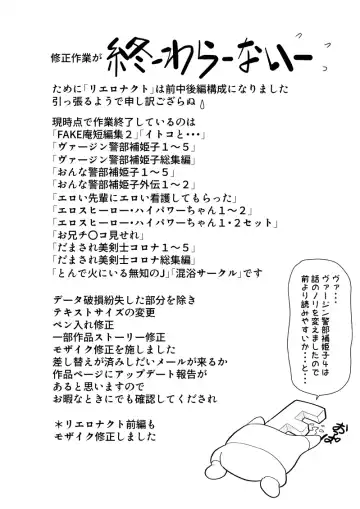 修正作業が
終ーわらーないー
ために「リエロナクト」は前中後編構成になりました
引っ張るようで申し訳ござらぬ
現時点で作業終了しているのは
「FAKE庵短編集２」「イトコと・・・」
「ヴァージン警部補姫子１～５」
「ヴァージン警部補姫子総集編」
「おんな警部補姫子１～５」
「おんな警部補姫子外伝１～２」
「エロい先輩にエロい看護してもらった」
「エロスヒーロー・ハイパワーちゃん１～２」
「エロスヒーロー・ハイパワーちゃん１・２セット」
「お兄チ〇コ見せれ」
「だまされ美剣士コロナ１～５」
「だまされ美剣士コロナ総集編」
「とんで火にいる無知のJ」「混浴サークル」です
データ破損紛失した部分を除き
テキストサイズの変更
ペン入れ修正
一部作品ストーリー修正
モザイク修正を施しました
差し替えが済みしだいメールが来るか
作品ページにアップデート報告が
あると思いますので
お暇なときにでも確認してくだされ
＊リエロナクト前編も
モザイク修正しました
ヴァ・・・
ヴァージン警部補姫子４は
話のノリを変えましたので
前より読みやすいか・・と・・